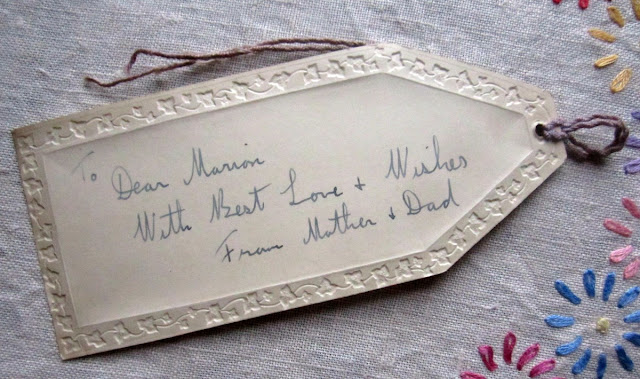 To Dear Marion
With Best Love + Wishes
From Mother & Dad